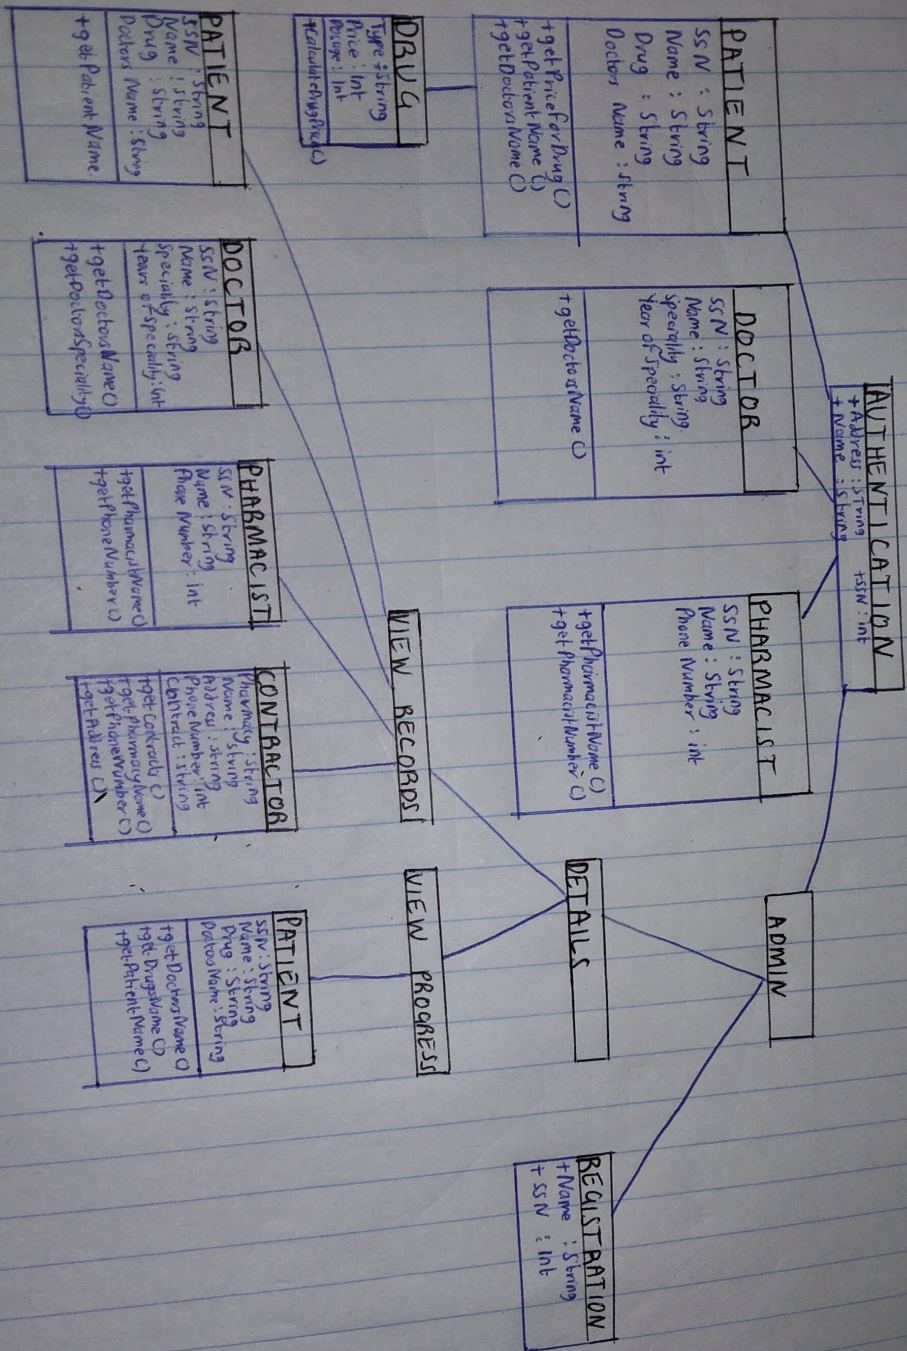 AUTHENTICATION
+Address : String
+SSN : int
+Name : String
ADMIN
PATIENT
SSN : String
Name : String
Drug : String
Doctors Name : String
+getPriceforDrug()
+getPatientName()
+getDoctorsName()
DOCTOR
SSN : String
Name : String
Speciality : String
Year of Speciality : int
+getDoctorsName()
PHARMACIST
SSN : String
Name : String
Phone Number : int
+getPharmacistName()
+getPharmacistNumber()
DETAILS
REGISTRATION
+Name : String
+SSN : Int
DRUG
Type : String
Price : Int
: Int
+CalculateDrugPrice()
VIEW RECORDS
VIEW PROGRESS
PATIENT
SSN : String
Name : String
Drug : String
Doctors Name : String
+getPatientName
DOCTOR
SSN : String
Name : String
Speciality : String
Years of Speciality : int
+getDoctorsName()
+getDoctorsSpeciality()
PHARMACIST
SSN : String
Name : String
Phone Number : int
+getPharmacistName()
+getPhoneNumber()
CONTRACTOR
Pharmacy : String
Name : String
Address : String
PhoneNumber : int
Contract : String
+getContracts()
+getPharmacyName()
+getPhoneNumber()
+getAddres()
PATIENT
SSN : String
Name : String
Drug : String
DoctorsName : String
+getDoctorsName()
+getDrugsName()
+getPatientName()